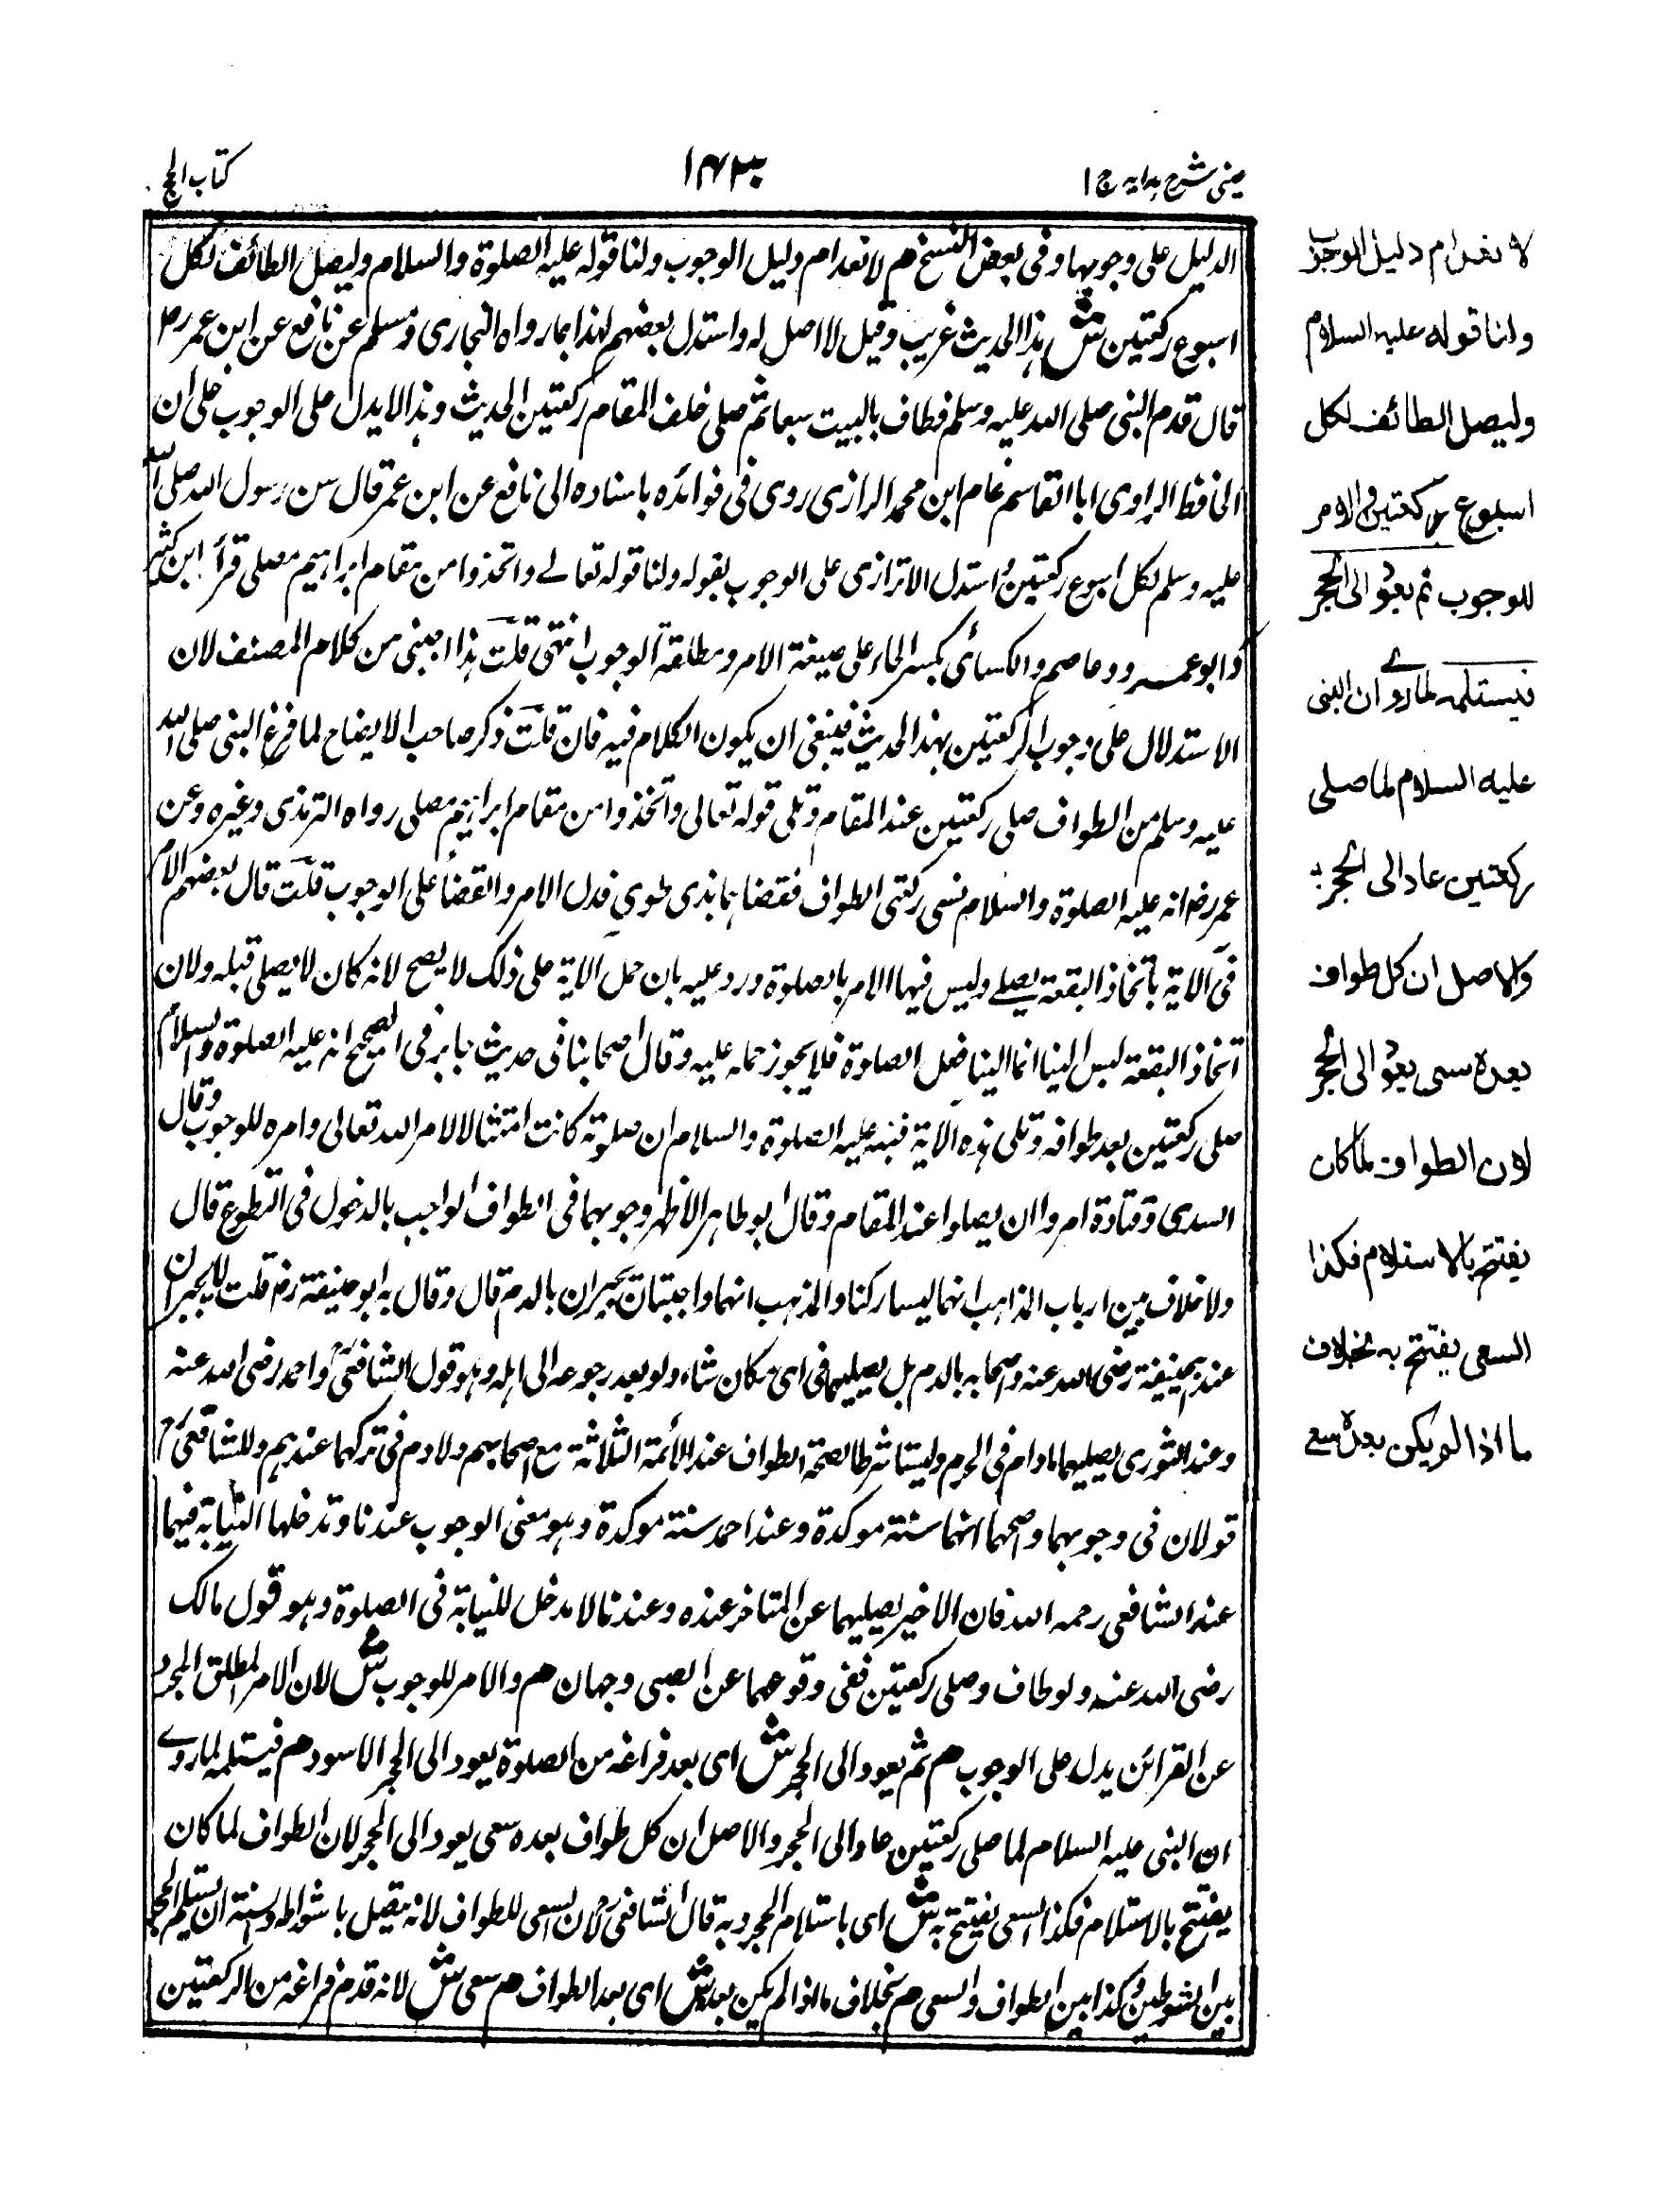 عینی شرح ہدایہ ج ۱
۱۴۲۳
کتاب الحج
الدلیل علی وجوبها وفی بعض النسخ هم لانعدام دلیل الوجوب ولنا قوله علیه الصلوة والسلام ولیصل الطائف لکل
اسبوع رکعتین ش هذا الحدیث غریب وقیل لا اصل له واستدل بعضهم لهذا بما رواه البخاری ومسلم عن نافع عن ابن عمر رض
قال قدم النبی صلی الله علیه وسلم فطاف بالبیت سبعا ثم صلی خلف المقام رکعتین الحدیث وهذا لا یدل علی الوجوب علی ان
الحافظ الراوی ابا القاسم تمام ابن محمد الرازی روی فی فوائده باسناده الی نافع عن ابن عمر قال سن رسول الله صلی الله
علیه وسلم لکل اسبوع رکعتین واستدل الاترازی علی الوجوب بقوله ولنا قوله تعالے واتخذوا من مقام ابراهیم مصلی قرأ ابن کثیر
وابو عمرو وعاصم والکسائی بکسر الخاء علی صیغة الامر ومطلقه الوجوب انتهی قلت هذا اجنبی من کلام المصنف لان
الاستدلال علی وجوب الرکعتین بهذا الحدیث فینبغی ان یکون الکلام فیه فان قلت ذکر صاحب الایضاح لما فرغ النبی صلی الله
علیه وسلم من الطواف صلی رکعتین عند المقام وتلی قوله تعالی واتخذوا من مقام ابراهیم مصلی رواه الترمذی وغیره وعن
عمر رض انه علیه الصلوة والسلام نسی رکعتی الطواف فقضاهما بذی طوی فدل الامر والقضاء علی الوجوب قلت قال بعضهم الامر
فی الآیة باتخاذ البقعة یصلے ولیس فیها الامر بالصلوة ورد علیه بان حمل الآیة علی ذلک لا یصح لانه کان لا یصلی قبله ولان
اتخاذ البقعة لیس الینا انما الینا فعل الصلوة فلا یجوز حمله علیه وقال اصحابنا فی حدیث جابر فی الصحیح انه علیه الصلوة والسلام
صلی رکعتین بعد طوافه وتلی هذه الآیة فنبه علیه الصلوة والسلام ان صلوته کانت امتثالا لامر الله تعالی وامره للوجوب وقال
السدی وقتادة امروا ان یصلوا عند المقام وقال ابو طاهر الاظهر وجوبهما فی الطواف الواجب بالدخول فی التطوع قال
ولا خلاف بین ارباب المذاهب انهما لیسا رکنا والمذهب انهما واجبتان تجبران بالدم قال وقال به ابو حنیفة رض قلت لا یجبران
عند ابیحنیفة رضی الله عنه واصحابه بالدم بل یصلیهما فی ای مکان شاء ولو بعد رجوعه الی اهله وهو قول الشافعی واحمد رضی الله عنه
وعند الثوری یصلیهما مادام فی الحرم ولیستا شرطا لصحة الطواف عند الائمة الثلاثة مع اصحابهم ولا دم فی ترکهما عندهم وللشافعی
قولان فی وجوبهما واصحهما انهما سنة موکدة وعند احمد سنة موکدة وهو معنی الوجوب عندنا وتدخلها النیابة فیهما
عند الشافعی رحمه الله فان الاخیر یصلیهما عن المتاخر عنده وعندنا لا مدخل للنیابة فی الصلوة وهو قول مالک
رضی الله عنه ولو طاف وصلی رکعتین ففی وقوعهما عن الصبی وجهان هم والامر للوجوب ش لان الامر المطلق المجرد
عن القرائن یدل علی الوجوب هم ثم یعود الی الحجر ش ای بعد فراغه من الصلوة یعود الی الحجر الاسود هم فیستلمه لما روے
ان النبی علیه السلام لما صلی رکعتین عاد الی الحجر والاصل ان کل طواف بعده سعی یعود الی الحجر لان الطواف لما کان
یفتتح بالاستلام فکذا السعی یفتتح به ش ای باستلام الحجر وبه قال الشافعی لان السعی للطواف لانه متصل باشواطه والسنة ان یستلم الحجر
بین الشوطین وکذا بین الطواف والسعی هم بخلاف ما اذا لم یکن بعده ش ای بعد الطواف هم سعی ش لانه قدم فراغه من الرکعتین
لانعدام دلیل الوجوب
ولنا قوله علیه السلام
ولیصل الطائف لکل
اسبوع رکعتین والامر
للوجوب ثم یعود الی الحجر
فیستلمه لما روے ان النبی
علیه السلام لما صلی
رکعتین عاد الی الحجر
والاصل ان کل طواف
بعده سعی یعود الی الحجر
لان الطواف لما کان
یفتتح بالاستلام فکذا
السعی یفتتح به بخلاف
ما اذا لم یکن بعده سعی